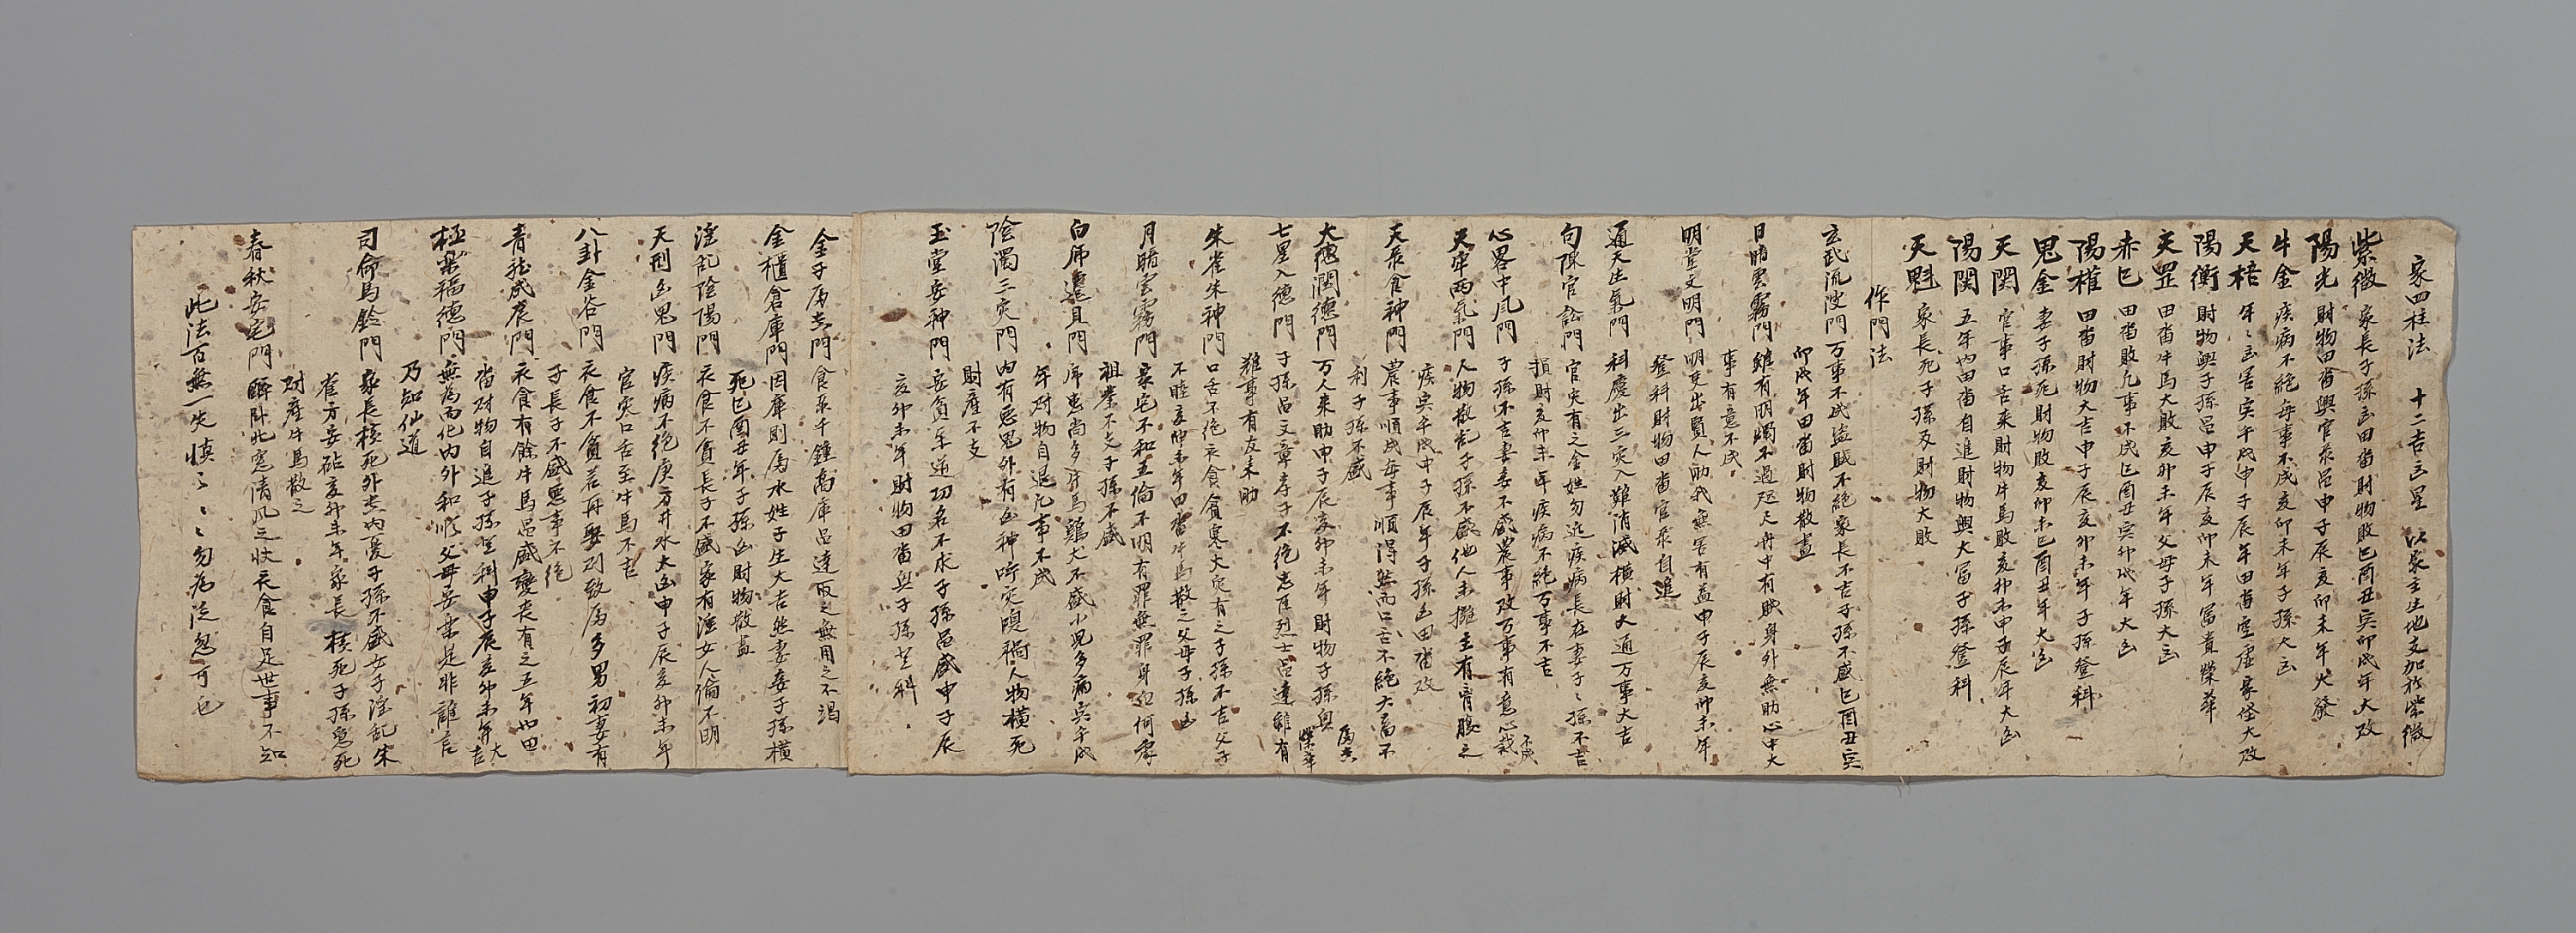 家四柱法 十二吉凶星 以家主生地支加於紫微
紫微 家長子孫凶田畓財物敗巳酉丑寅卯戌年大改
陽光 財物田畓興官祿昌申子辰亥卯未年大發
牛金 疾病不絶每事不成亥卯未年子孫大凶
天梧 年〻凶害寅午戌申子辰年田畓空虛家怪大改
陽衡 財物興子孫昌申子辰亥卯未年富貴榮華
天罡 田畓牛馬大敗亥卯未年父母子孫大凶
赤巳 田畓敗凡事不成巳酉丑寅卯戌年大凶
陽權 田畓財物大吉申子辰亥卯未年子孫登科
鬼金 妻子孫死財物敗亥卯未巳酉丑年大凶
天関 官事口舌來財物牛馬敗亥卯未申子辰年大凶
陽関 五年內田畓自進財物興大富子孫登科
天魁 家長死子孫及財物大敗
作門法
玄武流波門 万事不成盜賊不絶家長不吉子孫不盛巳酉丑寅
卯戌年田畓財物散盡
日暗雲霧門 雖有明燭不過咫尺舟中有賊身外無助心中大
事有意不成
明堂文明門 明雙出賢人助我無害有益申子辰亥卯未年
登科財物田畓官祿自進
通天生氣門 科慶出三灾入難消滅橫財大通万事大吉
句陳官訟門 官灾有之全姓勿近疾病長在妻子〻孫不吉
損財亥卯未年疾病不絶万事不吉
心畧中凡門 子孫不吉妻妾不盛農事改万事有意心哉
不成
天牢兩氣門 人物散亂子孫不盛他人未擁主有膏腹之
疾寅午戌申子辰年子孫凶田畓改
天辰食神門 農事順成每事順得然而口舌不絶大畜不
利子孫不盛
大德潤德門 万人來助申子辰亥卯未年財物子孫興
爲吉
榮華
七星入德門 子孫昌文章孝子不絶忠臣烈士昌達雖有
難事有友來助
朱雀朱神門 口舌不絶衣食貧寒大灾有之子孫不吉父子
不睦亥卯未年田畓牛馬散之父母子孫凶
月暗雲霧門 家宅不和五倫不明有罪無罪身犯何處
祖業不久子孫不盛
白虎進且門 虎患尚多牛馬鷄犬不盛小兒多病寅午戌
年財物自退凡事不成
陰濁三灾門 內有惡鬼外有凶神所灾殃禍人物橫死
財產不支
玉堂安神門 安貧樂逆功名不求子孫昌盛申子辰
亥卯未年財物田畓興子孫登科
金子爲吉門 食祿千鍾高庫昌達取之無用之不渴
金櫃倉庫門 因庫則爲水姓子生大吉然妻妾子孫橫
死巳酉丑年子孫凶財物散盡
淫乱陰陽門 衣食不貧長子不盛家有淫女人倫不明
天刑凶鬼門 疾病不絶庚方井水大凶申子辰亥卯未年
官灾口舌至牛馬不吉
八卦金谷門 衣食不貧若再娶則致爲多男初妻有
子長子不盛惡事不絶
靑龍成長門 衣食有餘牛馬昌盛變喪有之五年內田
畓財物自進子孫登科申子辰亥卯未年大吉
極樂福德門 無爲而化內外和順父母安樂是非誰言
乃知仙道
司命馬鈴門 家長核死外吉內憂子孫不盛女子淫乱朱
雀方安砧亥卯未年家長核死子孫寃死
財產牛馬散之
春秋安宅門 醉卧北窓淸風之狀衣食自足世事不知
此法百無一失愼〻〻勿爲泛忽可也